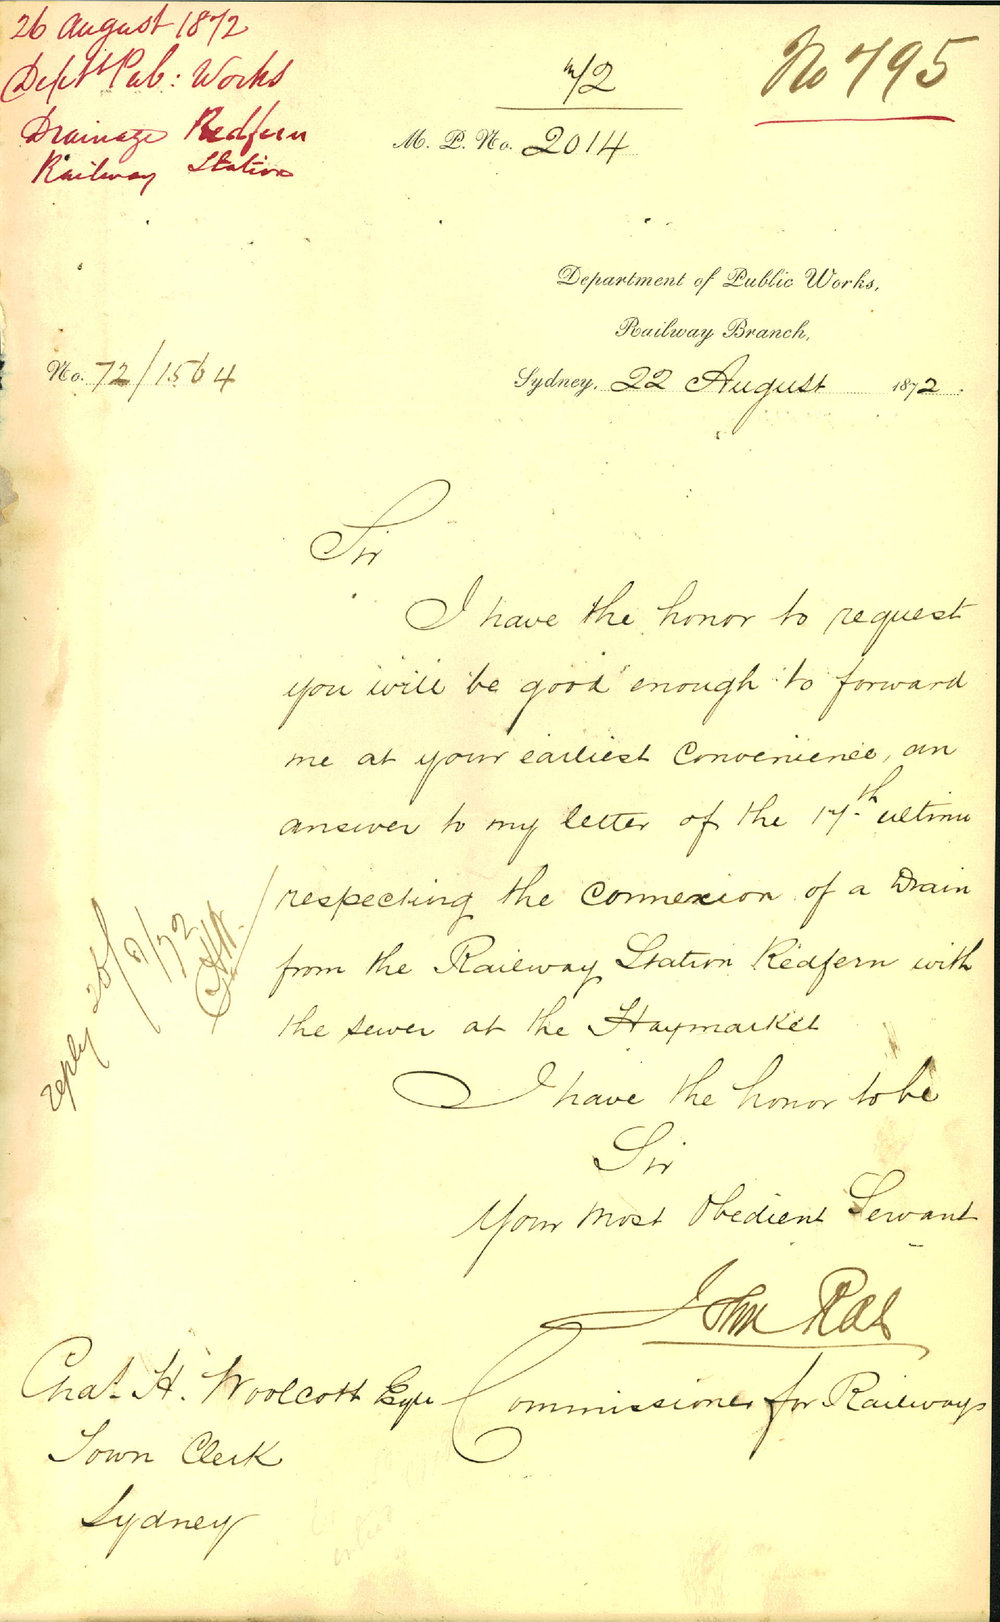 26 August 1872
Deptt Pub: Works
Drainage Redfern
Railway Station
No 795
72
M. P. No. 2014
Department of Public Works,
Railway Branch,
No. 72/1564
Sydney, 22 August 1872.
Sir
I have the honor to request
you will be good enough to forward
me at your earliest convenience, an
answer to my letter of the 17th ultimo
respecting the connexion of a Drain
from the Railway Station Redfern with
the sewer at the Haymarket
reply 26/8/72
CHW.
I have the honor to be
Sir
Your most Obedient Servant
John Rae
Commissioner for Railways
Chas. H. Woolcott Esqre
Town Clerk
Sydney